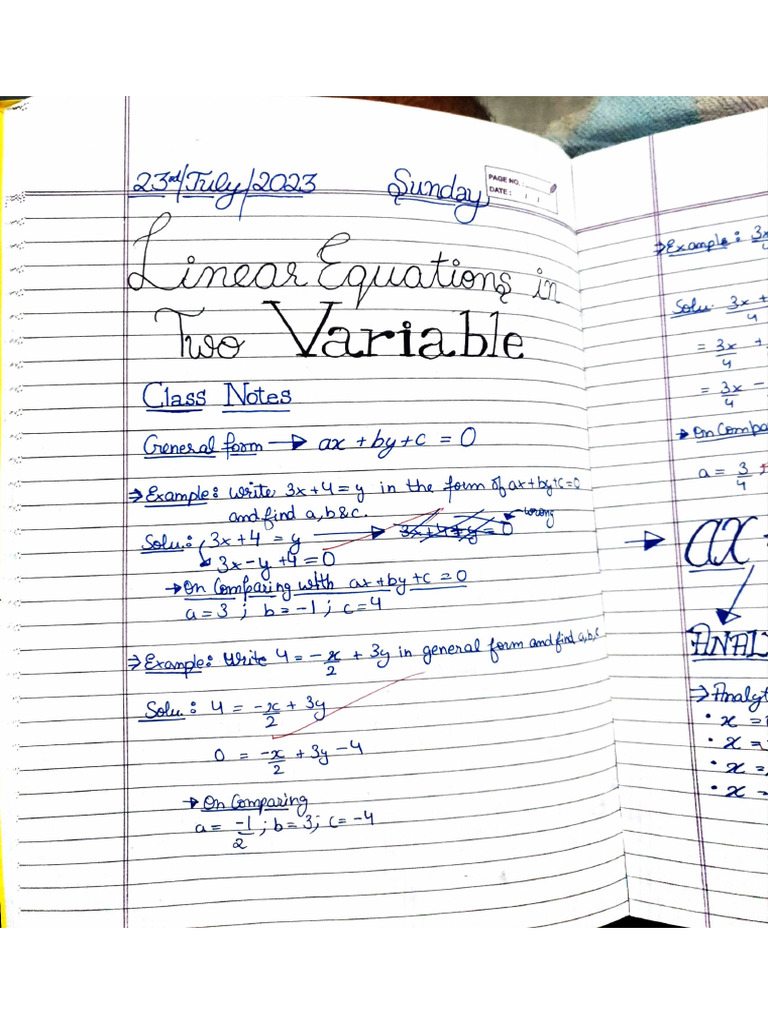 23rd/July/2023 Sunday
PAGE NO.:
DATE: / /
Linear Equations in
Two Variable
Class Notes
General form → ax + by + c = 0
⇒ Example: Write 3x+4=y in the form of ax+by+c=0
and find a, b & c.
Solu.: 3x+4 = y → 3x+4+y=0 wrong
3x-y+4=0
→ On Comparing with ax+by+c=0
a=3 ; b=-1 ; c=4
⇒ Example: Write 4 = -x/2 + 3y in general form and find a,b,c
Solu: 4 = -x/2 + 3y
0 = -x/2 + 3y - 4
→ On Comparing
a = -1/2 ; b=3 ; c=-4
⇒ Example: 3x
Solu. 3x +/4
= 3x/4 +
= 3x/4 -
→ On Compa
a = 3/4
→ ax
ANAL
⇒ Analyt
• x =
• x =
• x =
• x =